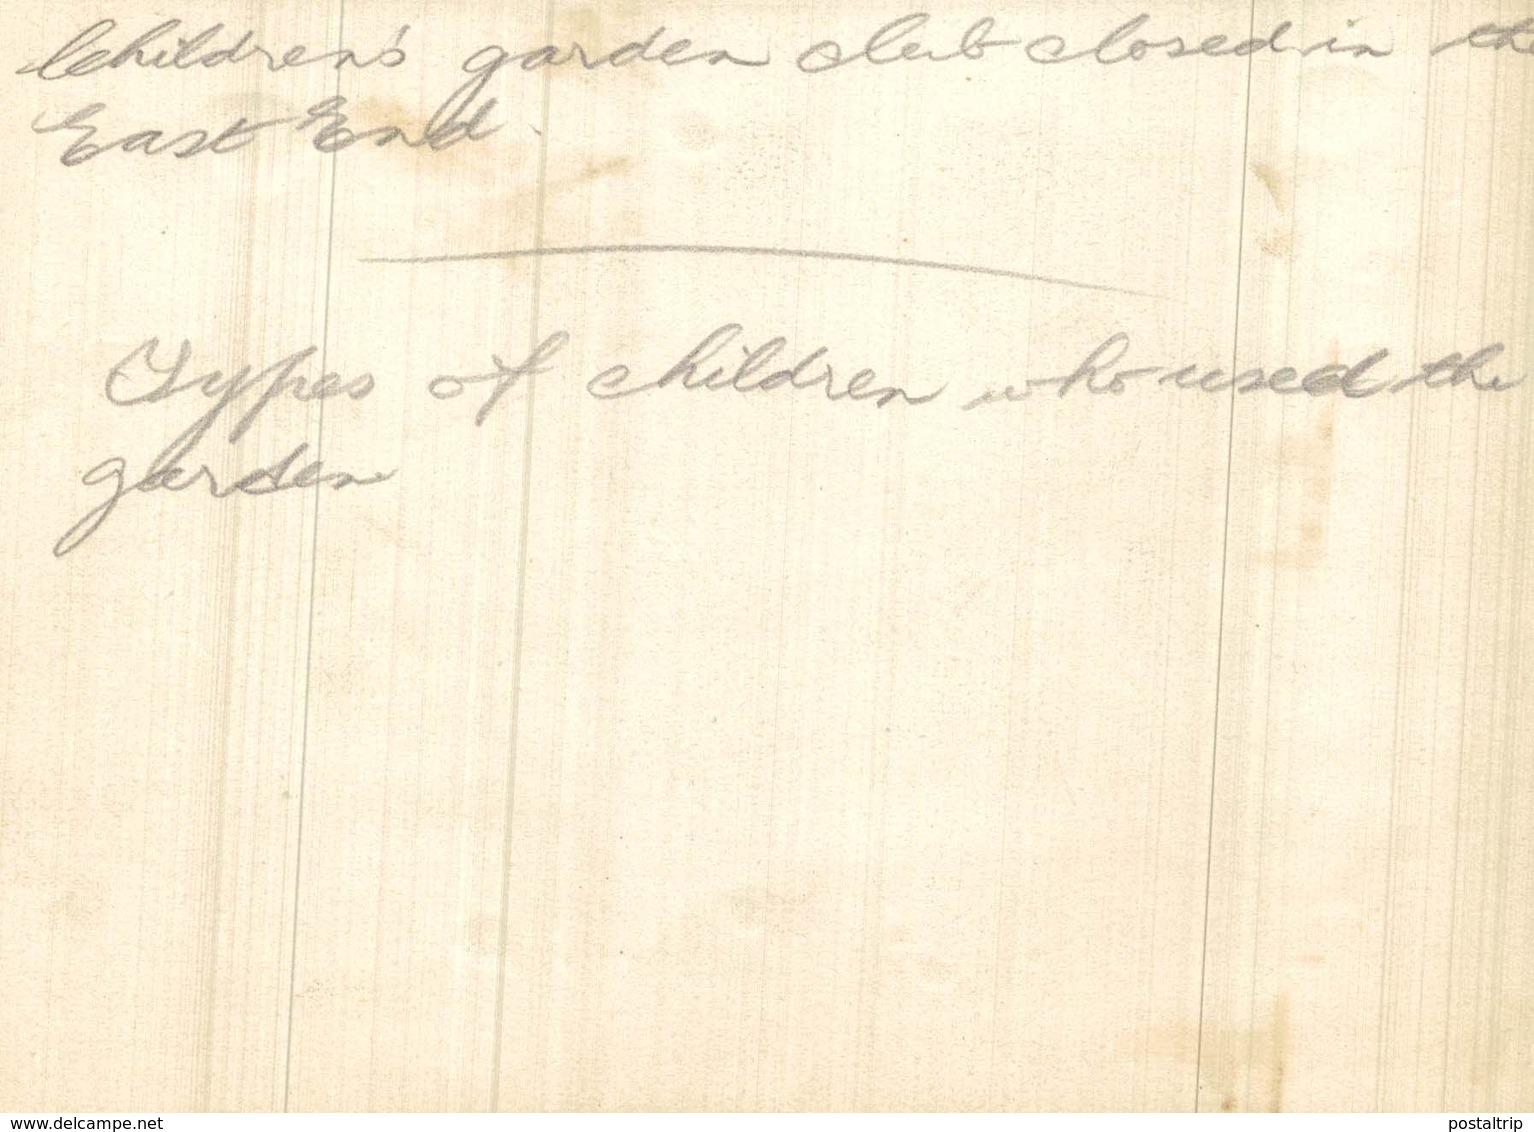 Children's garden club closed in th
East End.
Types of children who used the
garden
www.delcampe.net
postaltrip